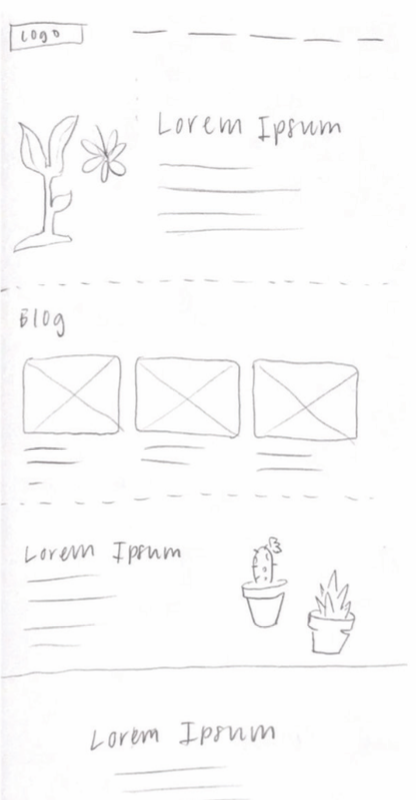 Logo
Lorem Ipsum
Blog
Lorem Ipsum
Lorem Ipsum